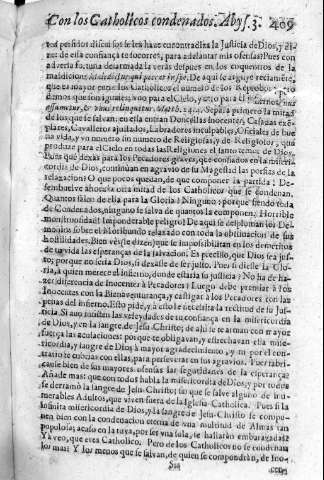 Con los Catholicos condenados. Abys. 3. 409
perfidos discursos se les hace encontradiza la Justicia de Dios, y el
de essa confiança te socorres, para adelantar mis ofensas! Pues con
adversa fortuna desarmada la verás despues en los enquentros de la
maldicion: De aqui se arguye reclamè,
que es mayor entre los Catholicos el numero de los Reprobos.
demos que son iguales: uno para el Cielo, y otro para el Infierno,
Separa primero la mitad
de los que se salvan: en esta entran Doncellas inocentes, Casadas exem-
plares, Cavalleros ajustados, Labradores inculpables, Oficiales de bue-
na vida, y un numero sin numero de Religiosas, y de Religiosos, que
produce para el Cielo en todas las Religiones el santo temor de Dios.
Pues què dexas para los Pecadores graves, que confiados en la miseri-
cordia de Dios, continuan en agravio de su Magestad las postas de la
relaxacion? O que pocos quedan, de que componer la partida! De-
sembuelve ahora la otra mitad de los Catholicos que se condenan.
Quantos salen de ella para la Gloria? Ninguno: porque siendo toda
de Condenados, ninguno se salva de quantos la componen. Horrible
monstruosidad! Imponderable peligro! De aqui se desploman los De-
monios sobre el Moribundo relaxado con toda la obstinacion de sus
hostilidades. Bien vès (le dizen) que se impossibilitan en los demeritos
de tu vida las esperanças de la salvacion. Es preciso, que Dios sea jus-
to; porque no seria Dios, si dexasse de ser justo. Pues si diesse la Glo-
ria, à quien merece el Infierno, donde estaria su justicia? No ha de ha-
zer diferencia de Inocentes à Pecadores? Luego debe premiar à los
Inocentes con la Bienaventurança, y castigar à los Pecadores con las
penas del infierno. Esto pide, y à esto le necessita la rectitud de su Jus-
ticia. Si aun insisten las veleydades de tu confiança en la misericordia
de Dios, y en la sangre de Jesu-Christo; de ahi se te arman con mayor
fuerça las acusaciones: porque te obligavan, y estrechavan essa mise-
ricordia, y sangre de Dios à mayor agradecimiento, y tu por el con-
trario te escudas con ellas, para perseverar en sus agravios. Pues fabri-
caste bien de sus mayores ofensas las seguridades de la esperança?
Añade mas: que con todos habla la misericordia de Dios, y por todos
se derramò la sangre de Jesu-Christo: sin que se salve alguno de in-
numerables Adultos, que viven fuera de la Iglesia Catholica. Pues si la
infinita misericordia de Dios, y la sangre de Jesu-Christo se compo-
nen bien con la condenacion eterna de una multitud de Almas tan
populosa; acaso en la tuya, por ser una sola, se hallaràn embaraçadas?
Ya veo, que eres Catholico. Pero de los Catholicos no se condenan
los mas? Y los menos que se salvan, de quien se compondràn, de Ino-